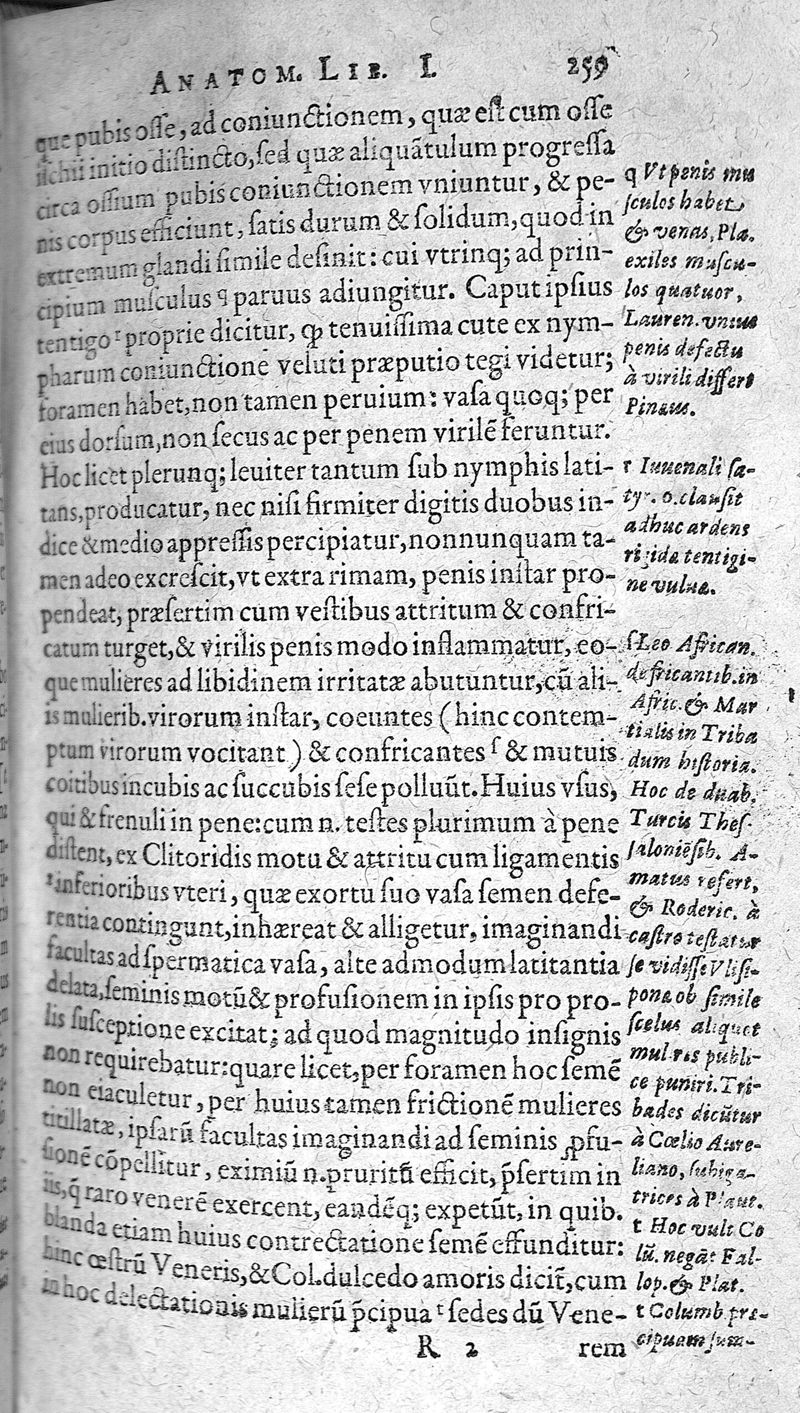 ANATOM. LIB. I. 259
que pubis osse, ad coniunctionem, quæ est cum osse
ischii initio distincto, sed quæ aliquãtulum progressa
circa ossium pubis coniunctionem vniuntur, & pe-
nis corpus efficiunt, satis durum & solidum, quod in
extremum glandi simile desinit: cui vtrinq; ad prin-
cipium musculus q paruus adiungitur. Caput ipsius
tentigo r proprie dicitur, ꝙ tenuissima cute ex nym-
pharum coniunctione veluti præputio tegi videtur;
foramen habet, non tamen peruium: vasa quoq; per
eius dorsum, non secus ac per penem virilẽ feruntur.
Hoc licet plerunq; leuiter tantum sub nymphis lati-
tans, producatur, nec nisi firmiter digitis duobus in-
dice & medio appressis percipiatur, nonnunquam ta-
men adeo excrescit, vt extra rimam, penis instar pro-
pendeat, præsertim cum vestibus attritum & confri-
catum turget, & virilis penis modo inflammatur, eo-
que mulieres ad libidinem irritatæ abutuntur, cũ ali-
is mulierib. virorum instar, coeuntes (hinc contem-
ptum virorum vocitant) & confricantes ſ & mutuis
coitibus incubis ac succubis sese polluũt. Huius vsus,
qui & frenuli in pene: cum n. testes plurimum à pene
distent, ex Clitoridis motu & attritu cum ligamentis
t inferioribus vteri, quæ exortu suo vasa semen defe-
rentia contingunt, inhæreat & alligetur, imaginandi
facultas ad spermatica vasa, alte admodum latitantia
delata, seminis motũ & profusionem in ipsis pro pro-
lis susceptione excitat; ad quod magnitudo insignis
non requirebatur: quare licet, per foramen hoc semẽ
non eiaculetur, per huius tamen frictionẽ mulieres
titillatæ, ipsarũ facultas imaginandi ad seminis ꝓfu-
sionẽ cõpellitur, eximiũ n. pruritũ efficit, p̃sertim in
iis, q̃ raro venerẽ exercent, eandẽq; expetũt, in quib.
blanda etiam huius contrectatione semẽ effunditur:
hinc œstrũ Veneris, & Col. dulcedo amoris dicit̃, cum
in hoc delectationis mulierũ p̃cipua t sedes dũ Vene-
R 2 rem
q Vt penis mu
sculos habet,
& venas, Pla.
exiles muscu-
los quatuor,
Lauren. vnius
penis defectu
à virili differt
Pinæus.
r Iuuenali sa-
tyr. 6. clausit
adhuc ardens
rigida tentigi-
ne vulua.
ſ Leo African.
de fricantib. in
Afric. & Mar
tialis in Triba
dum historia.
Hoc de duab.
Turcis Thes-
salonicẽsib. A-
matus refert,
& Roderic. à
castro testatur
se vidisse Vlisi-
ponæ ob simile
scelus aliquot
mulieres publi-
ce puniri. Tri-
bades dicũtur
à Cœlio Aure-
liano, subiga-
trices à Plaut.
t Hoc vult Co
lũ. negãt Fal-
lop. & Plat.
t Columb. præ-
cipuam sum-